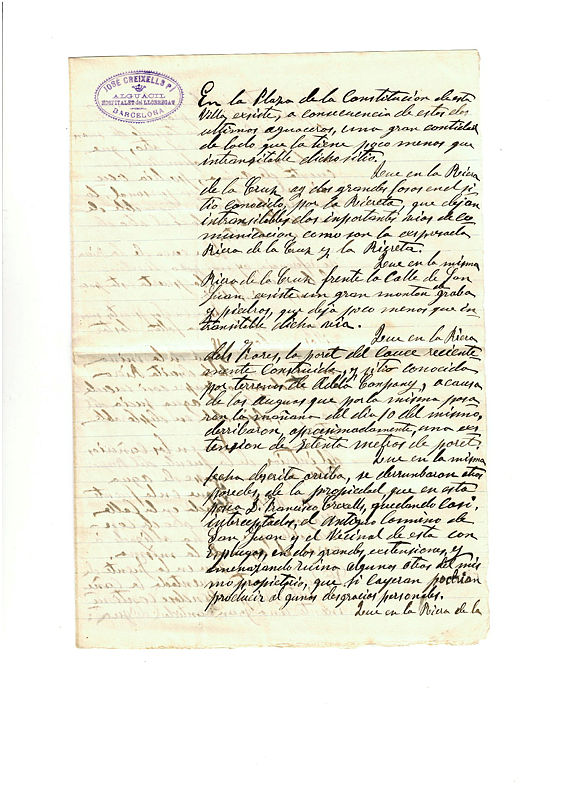 JOSÉ CREIXELLS PI
ALGUACIL
HOSPITALET del LLOBREGAT
BARCELONA
En la Plaza de la Constitucion de esta
Villa, existe, a consecuencia de estos dos
ultimos aguaceros, una gran contidad
de lodo que la tiene poco menos que
intransitable dicho sitio.
Que en la Riera
de la Cruz ay dos grandes fosos en el si
tio conocido, por la Riereta, que dejan
intransitables dos importantes vias de co
municacion, como son la expresada
Riera de la Cruz y la Riereta.
Que en la misma
Riera de la Cruz frente la Calle de San
Juan existe un gran monton de graba
y piedras, que deja poco menos que in
transitible dicha via.
Que en la Riera
dels Frares, la paret del cauce reciente
mente Construida, y sitio conocido
por terrenos de Adela Conpany, a causa
de las auguas que por la misma pasa
ran la mañana del dia 10 del mismo,
derribaron, aprocsimadamente, una ecs
tension de setenta metros de paret.
Que en la misma
fecha descrita arriba, se derrunbaron otras
paredes, de la propiedad que en esta
posea D. Francisco Crexells, quedando Casi,
interceptados, el Antiguo Comino de
San Juan y el Vecinal de esta con
Esplugas, en dos grandes ecstensiones, y
amenazando ruina algunas otras del mis
mo propietario, que si cayeran podrian
producir algunas desgracias personales.
Que en la Riera de la